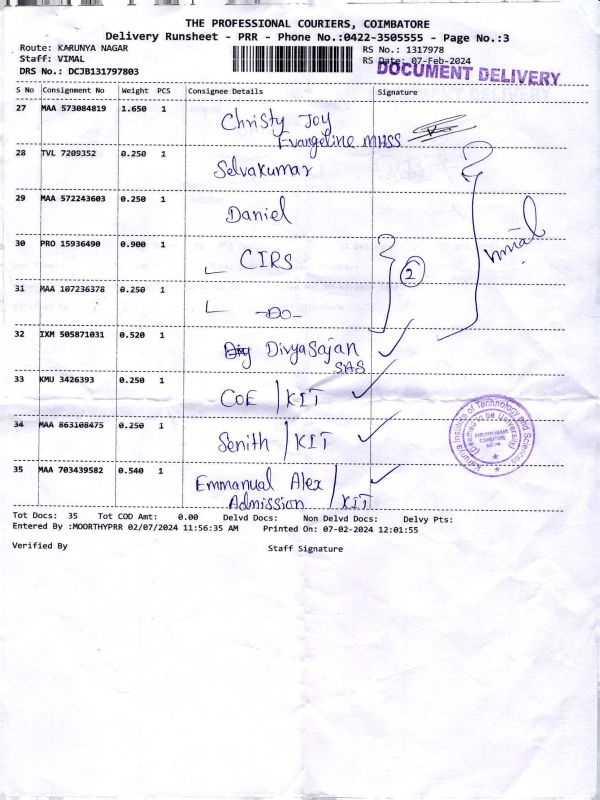 THE PROFESSIONAL COURIERS, COIMBATORE
Delivery Runsheet - PRR - Phone No.:0422-3505555 - Page No.:3
Route: KARUNYA NAGAR RS No.: 1317978
Staff: VIMAL RS Date: 07-Feb-2024
DRS No.: DCJB131797803 DOCUMENT DELIVERY
S No Consignment No Weight PCS Consignee Details Signature
27 MAA 573084819 1.650 1 Christy Joy
Evangeline MHSS
28 TVL 7209352 0.250 1 Selvakumar
29 MAA 572243603 0.250 1 Daniel
Vimal
30 PRO 15936490 0.900 1 CIRS
2
31 MAA 107236378 0.250 1 -DO-
32 IXM 505871031 0.520 1 DivyaSajan
SAS
33 KMU 3426393 0.250 1 COE / KIT
34 MAA 863108475 0.250 1 Senith / KIT
Karunya Institute of Technology and Sciences
(Deemed to be University)
35 MAA 703439582 0.540 1 Emmanual Alex /
Admission / KIT
Tot Docs: 35 Tot COD Amt: 0.00 Delvd Docs: Non Delvd Docs: Delvy Pts:
Entered By :MOORTHYPRR 02/07/2024 11:56:35 AM Printed On: 07-02-2024 12:01:55
Verified By Staff Signature